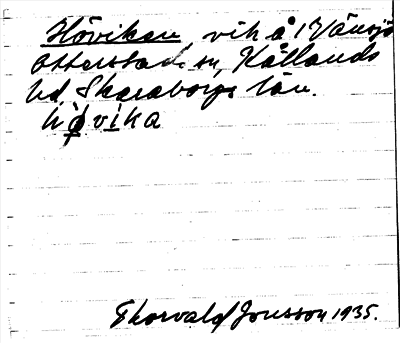 Höviken vik å Vänsjö
Otterstads sn, Kållands
hd, Skaraborgs län.
hø̀vika
Thorvald Jonsson 1935.